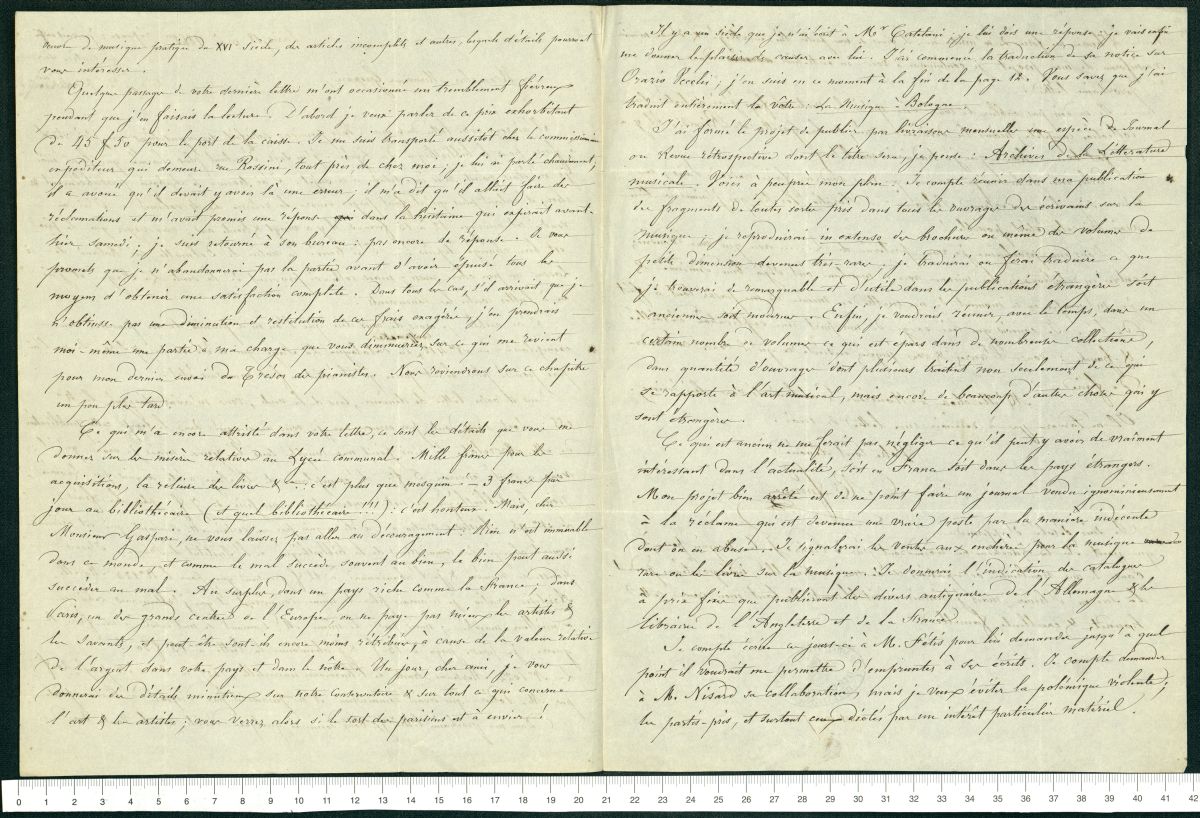 œuvres de musique pratique du XVI siècle, des articles incomplets et autres, lesquels détails pourront
vous intéresser.
Quelques passages de votre dernière lettre m'ont occasionné un tremblement fiévreux
pendant que j'en faisais la lecture. D'abord je veux parler de ce prix exhorbitant
de 45 f 50 pour le port de la caisse. Je me suis transporté aussitôt chez le commissionnaire
expéditeur qui demeure rue Rossini, tout près de chez moi; je lui ai parlé chaudement,
il a avoué qu'il devait y avoir là une erreur; il m'a dit qu'il allait faire des
réclamations et m'avait promis une réponse dans la huitaine qui expirait avant-
hier samedi; je suis retourné à son bureau: pas encore de réponse. Je vous
promets que je n'abandonnerai pas la partie avant d'avoir épuisé tous les
moyens d'obtenir une satisfaction complète. Dans tous les cas, s'il arrivait que je
n'obtinsse pas une diminution et restitution de ces frais exagérés, j'en prendrais
moi-même une partie à ma charge que vous diminueriez sur ce qui me revient
pour mon dernier envoi du Trésor des pianistes. Nous reviendrons sur ce chapitre
un peu plus tard.
Ce qui m'a encore attristé dans votre lettre, ce sont les détails que vous me
donnez sur les misères relatives au Lycée communal. Mille francs pour les
acquisitions, la reliure des livres &c: c'est plus que mesquin. — 3 francs par
jour au bibliothécaire (et quel bibliothécaire!!!): c'est honteux. Mais, cher
Monsieur Gaspari, ne vous laissez pas aller au découragement: Rien n'est immuable
dans ce monde, et comme le mal succède souvent au bien, le bien peut aussi
succéder au mal. Au surplus, dans un pays riche comme la France, dans
Paris, un des grands centres de l'Europe, on ne paye pas mieux les artistes &
les savants, et peut être sont-ils encore moins rétribués, à cause de la valeur relative
de l'argent dans votre pays et dans le nôtre. Un jour, cher ami, je vous
donnerai des détails minutieux sur notre Conservatoire & sur tout ce qui concerne
l'art & les artistes; vous verrez alors si le sort des parisiens est à envier!
Il y a un siècle que je n'ai écrit à Mr Catelani; je lui dois une réponse: je vais enfin
me donner le plaisir de causer avec lui. J'ai commencé la traduction de sa notice sur
Orazio Vecchi; j'en suis en ce moment à la fin de la page 12. Vous savez que j'ai
traduit entièrement la vôtre: La Musique à Bologne.
J'ai formé le projet de publier par livraisons mensuelles une espèce de Journal
ou Revue rétrospective dont le titre sera, je pense: Archives de la Littérature
musicale. Voici à peu près mon plan: Je compte réunir dans ma publication
des fragments de toutes sortes pris dans tous les ouvrages des écrivains sur la
musique; je reproduirai in extenso des brochures ou même des volumes de
petite dimension devenus très-rares. je traduirai ou ferai traduire ce que
je trouverai de remarquable et d'utile dans les publications étrangères soit
anciennes soit modernes. Enfin, je voudrais réunir, avec le temps, dans un
certain nombre de volumes ce qui est epars dans de nombreuses collections,
dans quantité d'ouvrages dont plusieurs traitent non seulement de ce qui
se rapporte à l'art musical, mais encore de beaucoup d'autres choses qui y
sont étrangères.
Ce qui est ancien ne me ferait pas négliger ce qu'il peut y avoir de vraiment
intéressant dans l'actualité, soit en France soit dans les pays étrangers.
Mon projet bien arrêté est de ne point faire un journal vendu ignominieusement
à la réclame qui est devenue une vraie peste par la manière indécente
dont on en abuse. Je signalerai les ventes aux enchères pour la musique
rare ou les livres sur la musique. Je donnerai l'indication des catalogues
à prix fixes que publieront les divers antiquaires de l'Allemagne & les
libraires de l'Angleterre et de la France.
Je compte écrire ces jours-ci à M. Fétis pour lui demander jusqu'à quel
point il voudrait me permettre d'emprunter à ses écrits. Je compte demander
à M. Nisard sa collaboration, mais je veux éviter la polémique violente;
les partis-pris, et surtout ceux dictés par un intérêt particulier matériel.
0 1 2 3 4 5 6 7 8 9 10 11 12 13 14 15 16 17 18 19 20 21 22 23 24 25 26 27 28 29 30 31 32 33 34 35 36 37 38 39 40 41 42